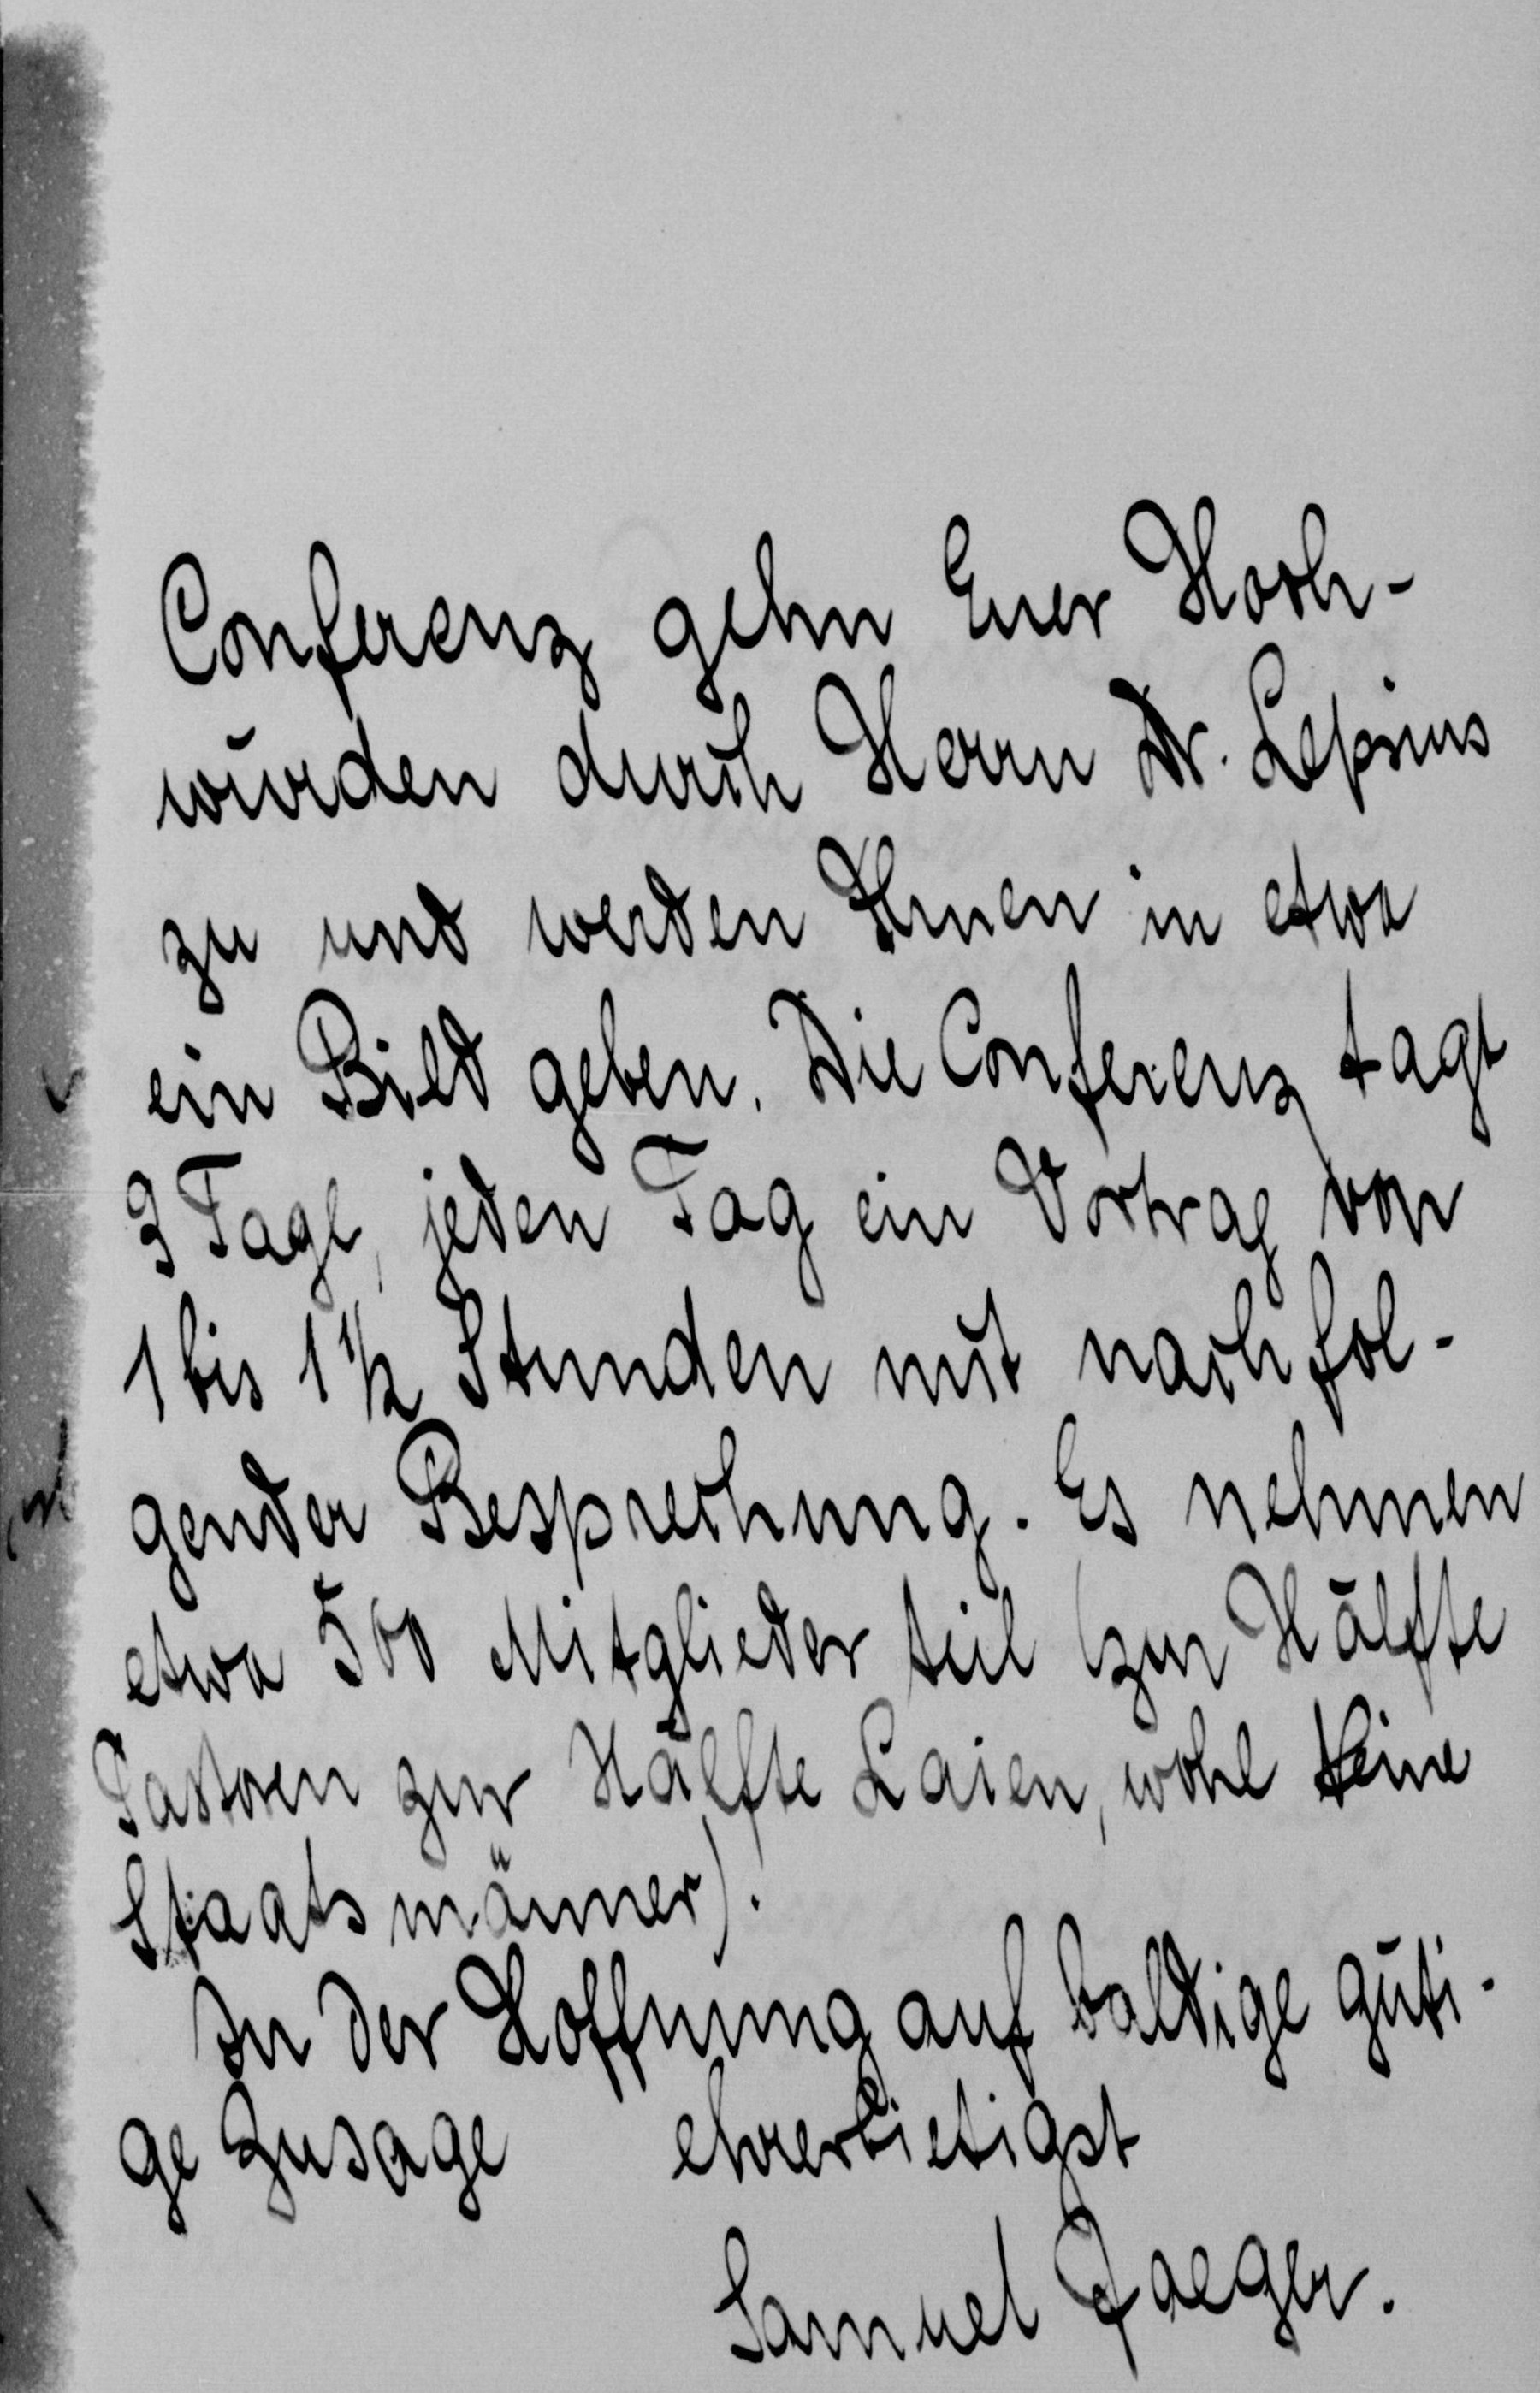 Conferenz gehn Euer Hoch-
würden durch Herrn Dr. Lepsius
zu und werden Ihnen in etwa
ein Bild geben. Die Conferenz tagt
3 Tage, jeden Tag ein Vortrag von
1 bis 1 1/2 Stunden mit nachfol-
gender Besprechung. Es nehmen
etwa 500 Mitglieder teil (zur Hälfte
Pastoren zur Hälfte Laien, wohl keine
Staatsmänner).
In der Hoffnung auf baldige güti-
ge Zusage ehrerbietigst
Samuel Jaeger.